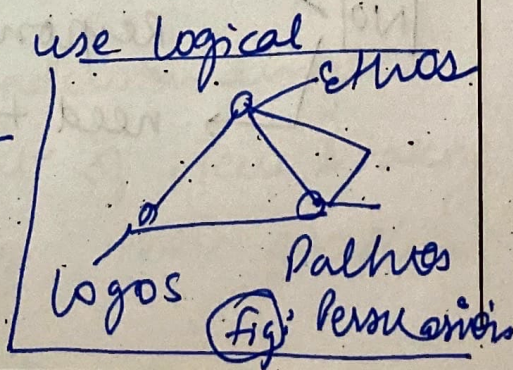 use logical
Ethos
Logos
Pathos
fig: Persuasion